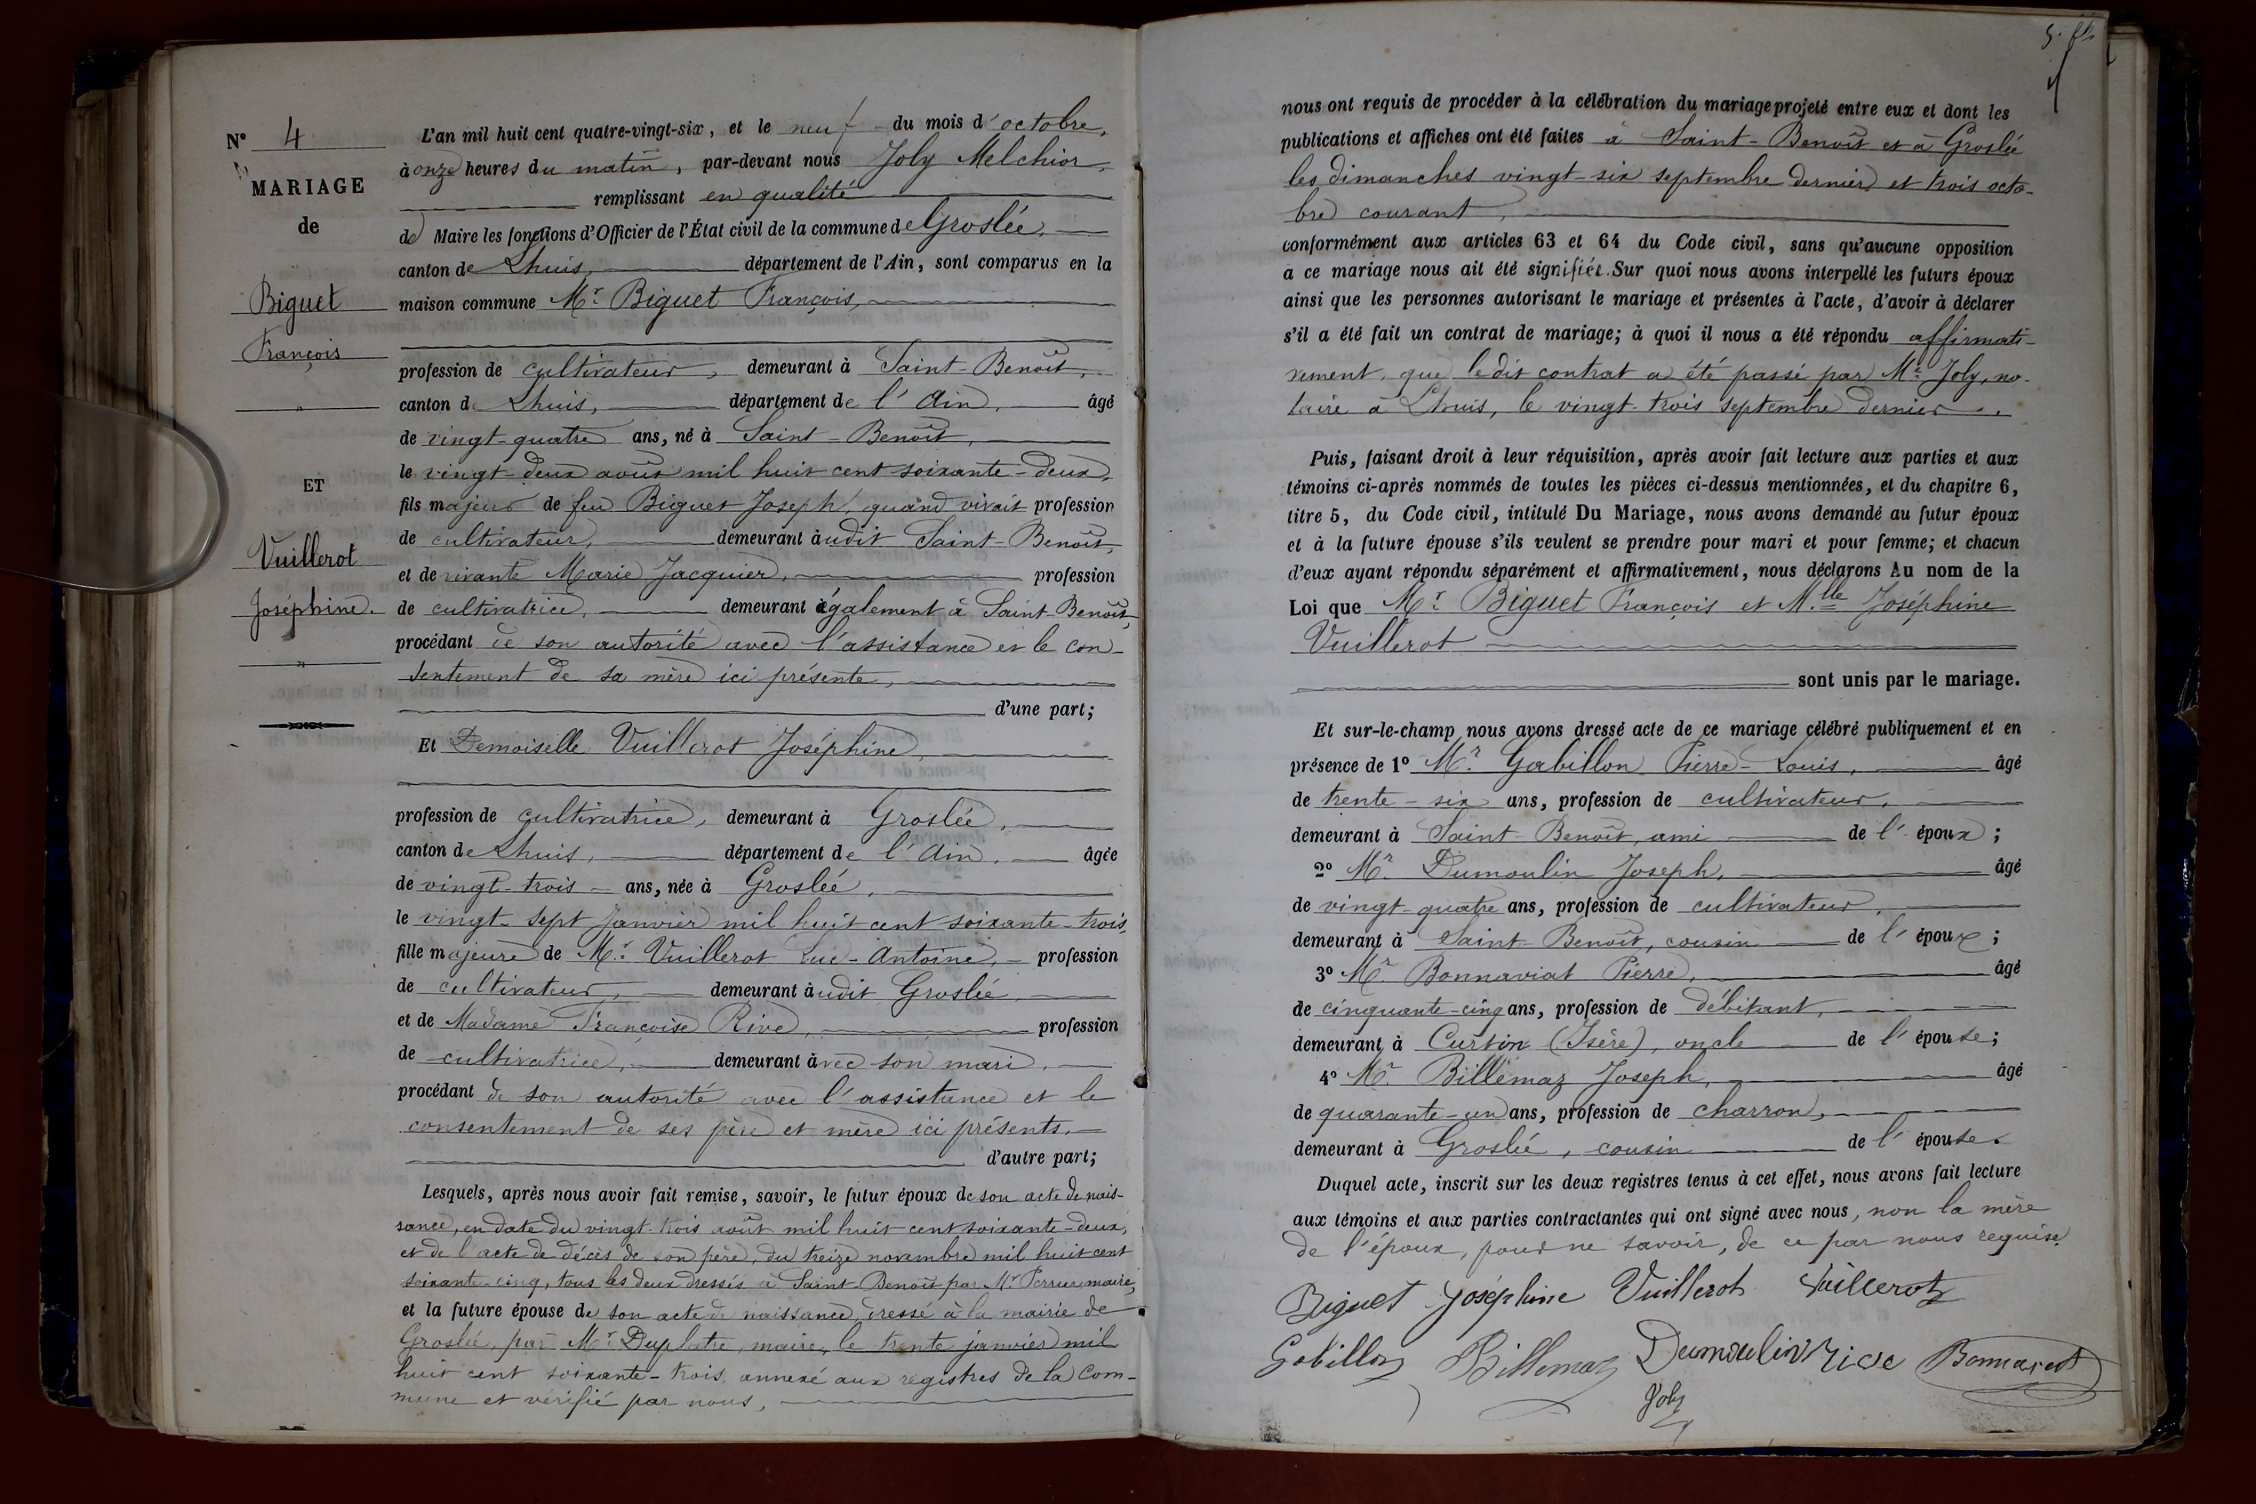 N° 4
MARIAGE
de
Biguet
François
"
ET
Vuillerot
Joséphine.
"
L'an mil huit cent quatre-vingt-six, et le neuf du mois d'octobre,
à onze heures du matin, par-devant nous Joly Melchior,
remplissant en qualité
de Maire les fonctions d'Officier de l'État civil de la commune de Groslée,
canton de Lhuis, département de l'Ain, sont comparus en la
maison commune Mr. Biguet François,
profession de cultivateur, demeurant à Saint-Benoît,
canton de Lhuis, département de l'Ain, âgé
de vingt-quatre ans, né à Saint-Benoît,
le vingt-deux août mil huit cent soixante-deux,
fils majeur de feu Biguet Joseph, quand vivait profession
de cultivateur, demeurant audit Saint-Benoît,
et de vivante Marie Jacquier, profession
de cultivatrice, demeurant également à Saint-Benoît,
procédant de son autorité avec l'assistance et le con-
sentement de sa mère ici présente,
d'une part;
Et Demoiselle Vuillerot Joséphine,
profession de cultivatrice, demeurant à Groslée,
canton de Lhuis, département de l'Ain, âgée
de vingt-trois ans, née à Groslée,
le vingt-sept Janvier mil huit cent soixante-trois,
fille majeure de Mr. Vuillerot Luc-Antoine, profession
de cultivateur, demeurant audit Groslée,
et de Madame Françoise Rive, profession
de cultivatrice, demeurant avec son mari,
procédant de son autorité avec l'assistance et le
consentement de ses père et mère ici présents,
d'autre part;
Lesquels, après nous avoir fait remise, savoir, le futur époux de son acte de nais-
sance, en date du vingt-trois août mil huit cent soixante-deux,
et de l'acte de décès de son père, du treize novembre mil huit cent
soixante-cinq, tous les deux dressés à Saint-Benoît par Mr Perrier maire,
et la future épouse de son acte de naissance, dressé à la mairie de
Groslée, par Mr. Duplatre, maire, le trente janvier mil
huit cent soixante-trois, annexé aux registres de la com-
mune et vérifié par nous,
nous ont requis de procéder à la célébration du mariage projeté entre eux et dont les
publications et affiches ont été faites à Saint-Benoît et à Groslée
les dimanches vingt-six septembre dernier et trois octo-
bre courant,
conformément aux articles 63 et 64 du Code civil, sans qu'aucune opposition
à ce mariage nous ait été signifiée. Sur quoi nous avons interpellé les futurs époux
ainsi que les personnes autorisant le mariage et présentes à l'acte, d'avoir à déclarer
s'il a été fait un contrat de mariage; à quoi il nous a été répondu affirmati-
vement, que ledit contrat a été passé par Me. Joly, no-
taire à Lhuis, le vingt-trois septembre dernier.
Puis, faisant droit à leur réquisition, après avoir fait lecture aux parties et aux
témoins ci-après nommés de toutes les pièces ci-dessus mentionnées, et du chapitre 6,
titre 5, du Code civil, intitulé Du Mariage, nous avons demandé au futur époux
et à la future épouse s'ils veulent se prendre pour mari et pour femme; et chacun
d'eux ayant répondu séparément et affirmativement, nous déclarons Au nom de la
Loi que Mr. Biguet François et M.lle Joséphine
Vuillerot
sont unis par le mariage.
Et sur-le-champ nous avons dressé acte de ce mariage célébré publiquement et en
présence de 1° Mr. Gabillon Pierre-Louis, âgé
de trente-six ans, profession de cultivateur,
demeurant à Saint-Benoît, ami de l'époux;
2° Mr. Dumoulin Joseph, âgé
de vingt-quatre ans, profession de cultivateur,
demeurant à Saint-Benoît, cousin de l'époux;
3° Mr. Bonnaviat Pierre, âgé
de cinquante-cinq ans, profession de débitant,
demeurant à Curtin (Isère), oncle de l'épouse;
4° Mr. Billemaz Joseph, âgé
de quarante-un ans, profession de charron,
demeurant à Groslée, cousin de l'épouse.
Duquel acte, inscrit sur les deux registres tenus à cet effet, nous avons fait lecture
aux témoins et aux parties contractantes qui ont signé avec nous, non la mère
de l'époux, pour ne savoir, de ce par nous requise.
Biguet Joséphine Vuillerot Vuillerot
Gabillon Billemaz Dumoulin Rive Bonnaviat
Joly